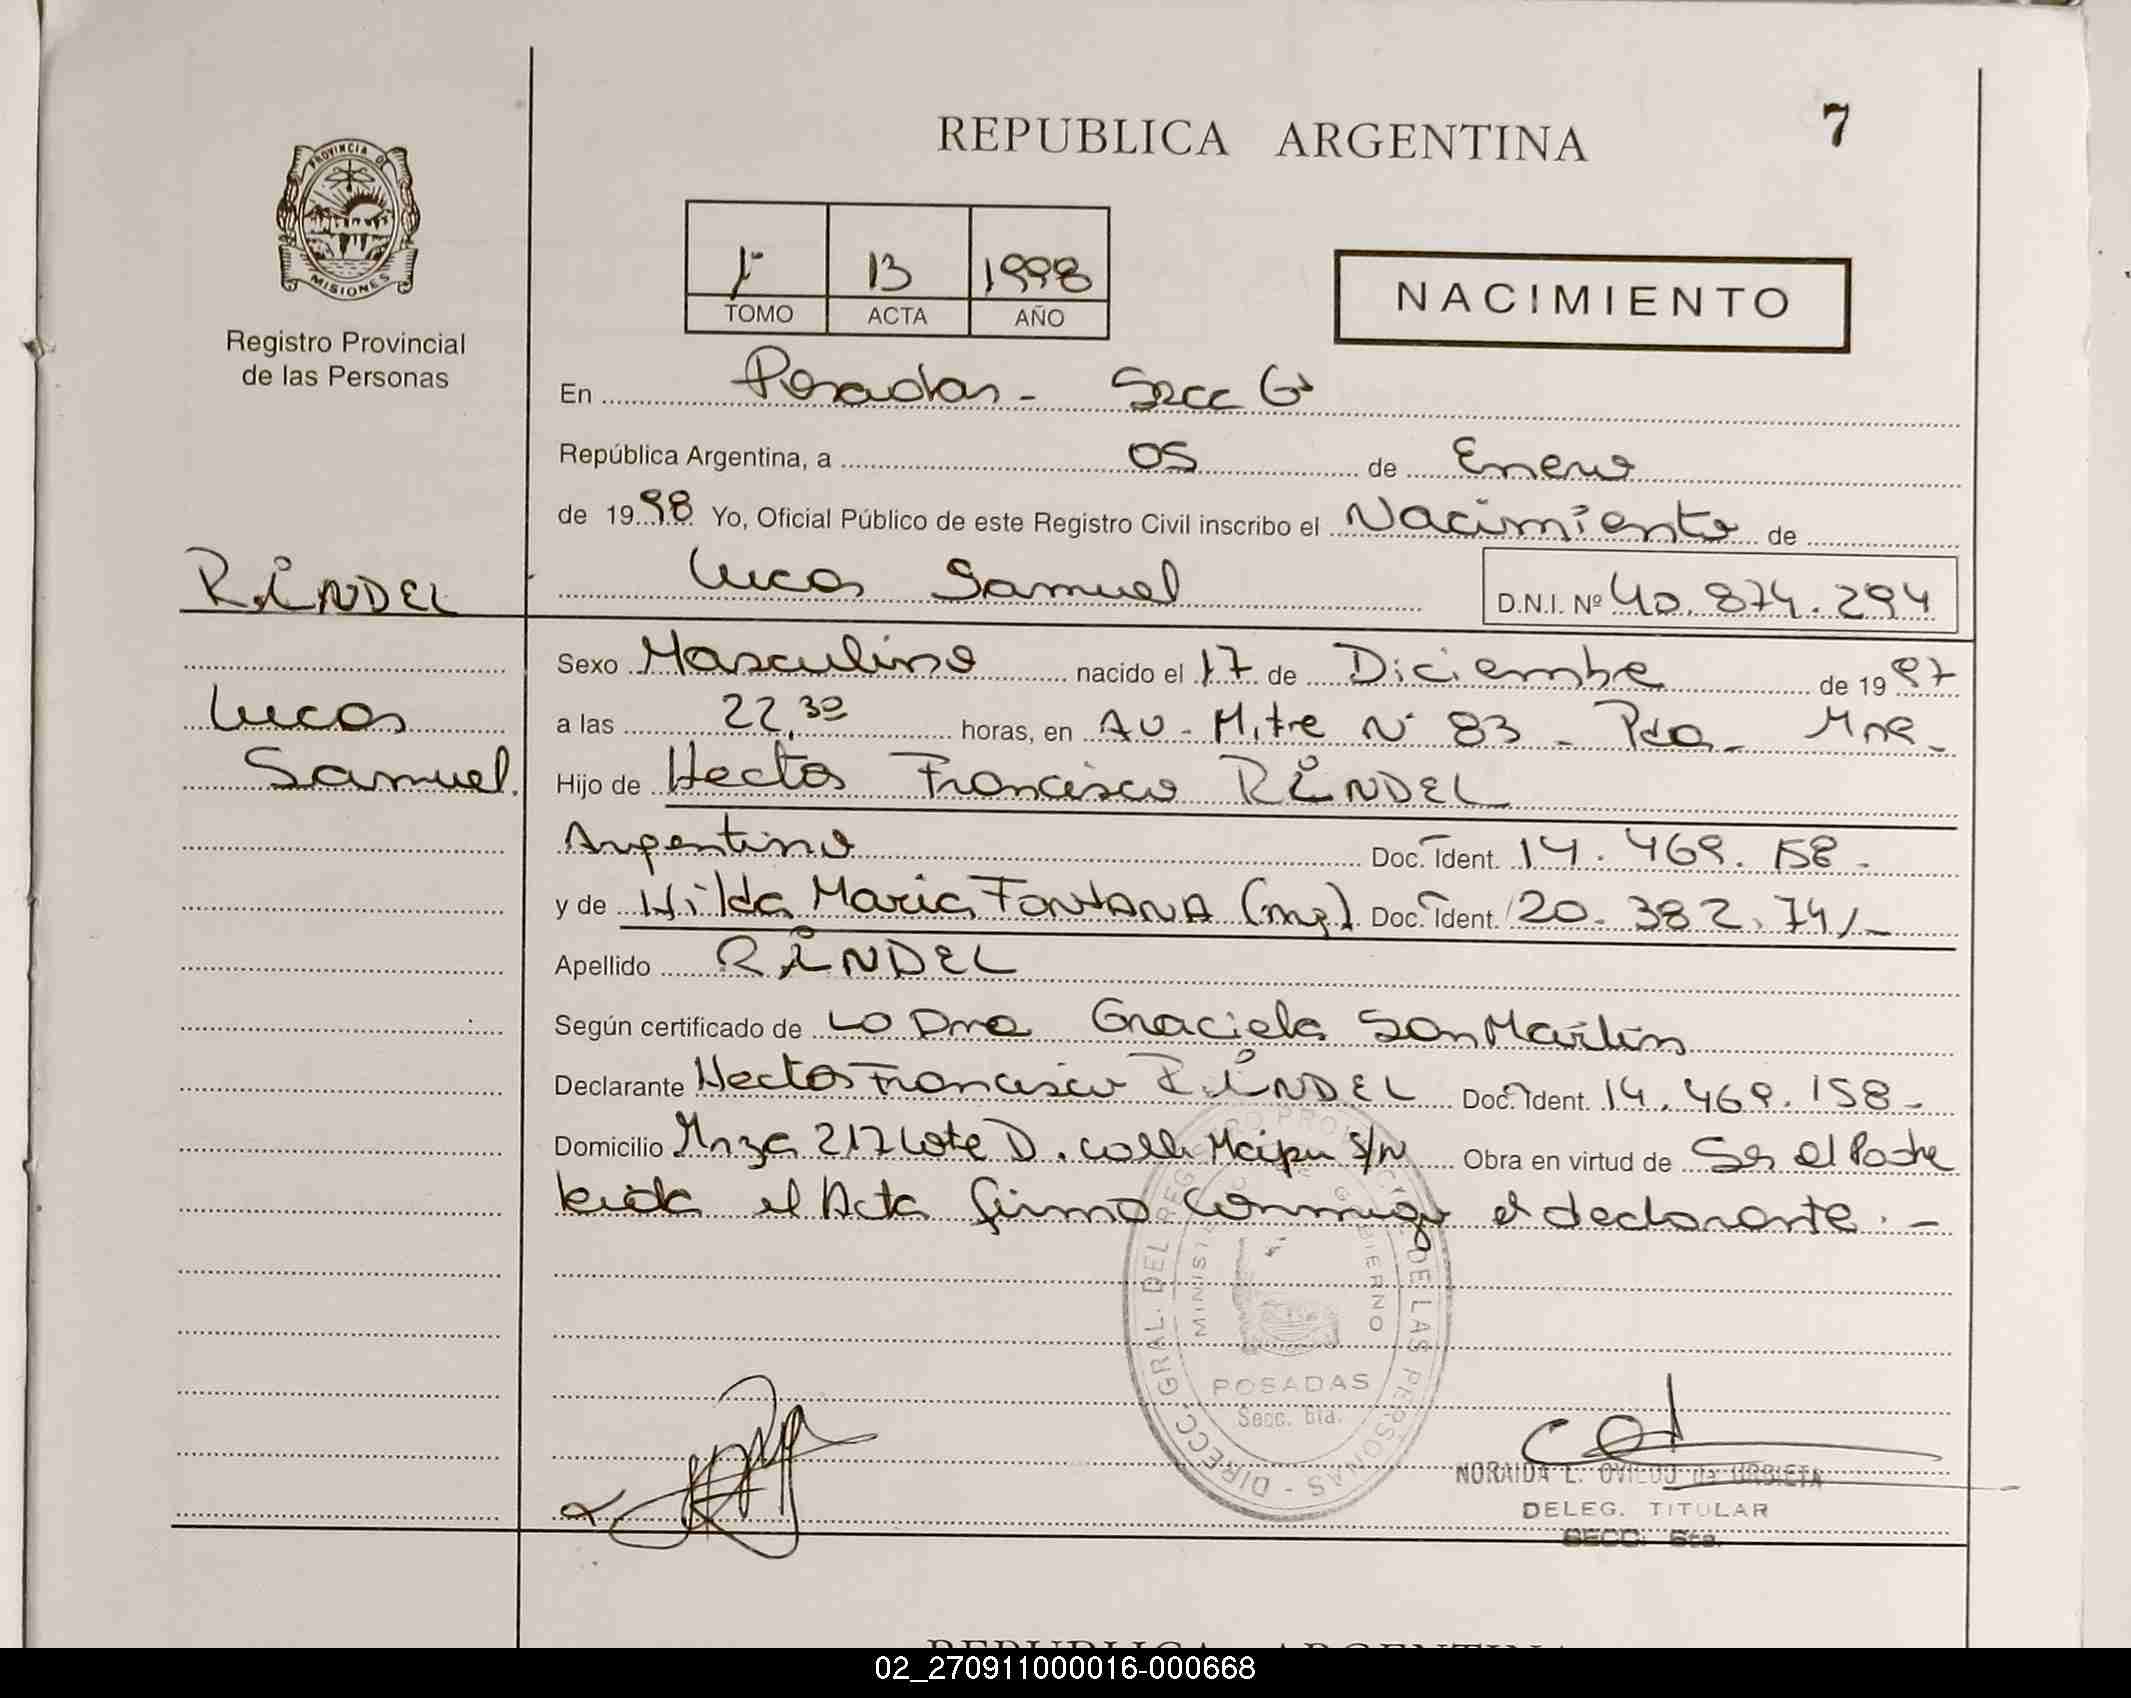 REPUBLICA ARGENTINA
7
PROVINCIA DE
MISIONES
Registro Provincial
de las Personas
1º 13 1998
TOMO ACTA AÑO
NACIMIENTO
En Posadas - Secc 6ª
República Argentina, a 05 de Enero
de 1998 Yo, Oficial Público de este Registro Civil inscribo el Nacimiento de
RINDEL
Lucas Samuel D.N.I. Nº 40.874.294
Sexo Masculino nacido el 17 de Diciembre de 1997
Lucas
Samuel.
a las 22,30 horas, en Av - Mitre Nº 83 - Pdas - Mnes -
Hijo de Hector Francisco RINDEL
Argentino Doc. Ident. 14.469.158 -
y de Hilda Maria FONTANA (arg). Doc. Ident. 20.382.741 -
Apellido RINDEL
Según certificado de La Dra Graciela San Martin
Declarante Hector Francisco RINDEL Doc. Ident. 14.469.158 -
Domicilio Mnza 217 Lote D. calle Maipu S/N Obra en virtud de Ser el Padre
leida el Acta firma conmigo el declarante. -
DIRECC. GRAL. DEL REGISTRO PROVINCIAL DE LAS PERSONAS
MINISTERIO DE GOBIERNO
POSADAS
Secc. 6ta.
NORAIDA L. OVIEDO de URBIETA
DELEG. TITULAR
SECC. 6ta.
REPUBLICA ARGENTINA
02_270911000016-000668